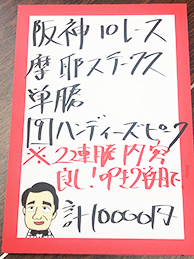 阪神10レース
摩耶ステークス
単勝
[9]ハンディーズピーク
※22連勝内容
良し!叩き2戦目で
計10000円